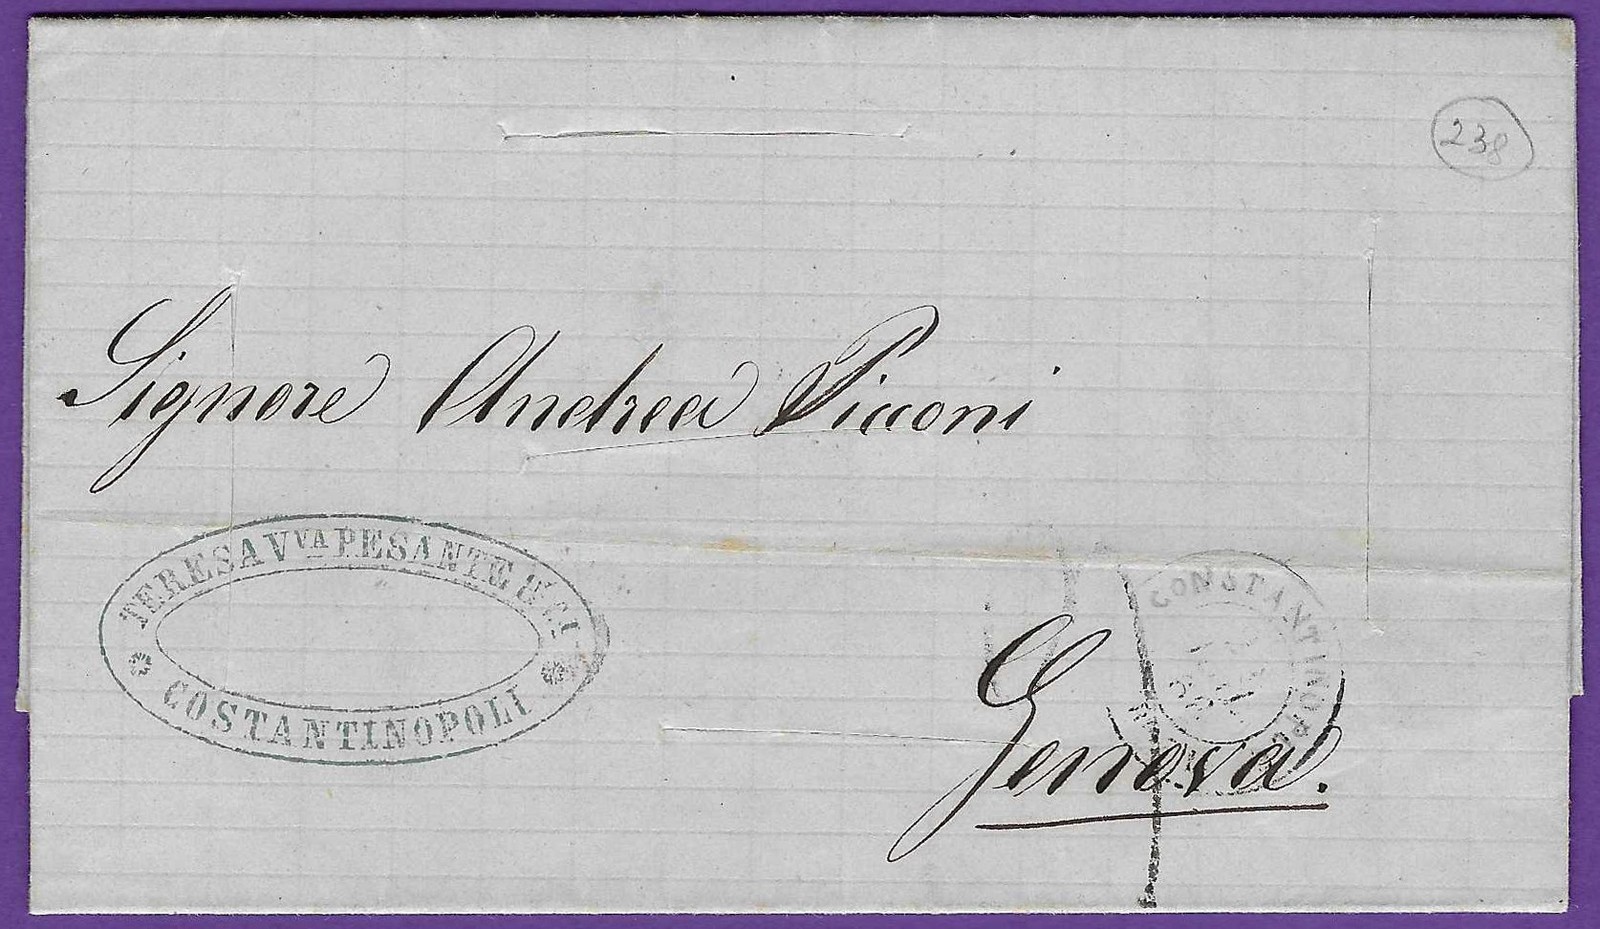 238
Signore Andrea Picconi
TERESA Vva PESANTE E CI
COSTANTINOPOLI
CONSTANTINOPLE
Genova.